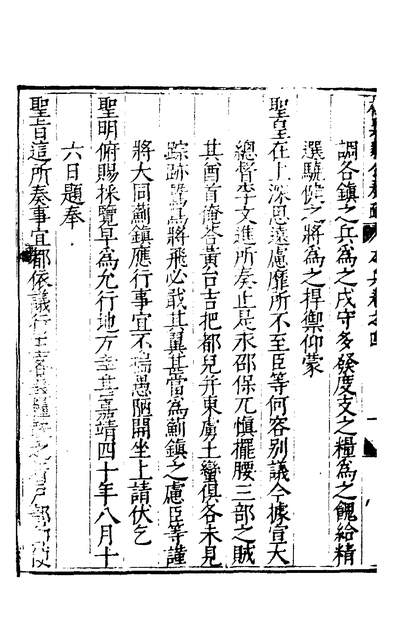 本兵卷之
調各鎮之兵為之戍守多發度支之糧為之餽給精
選驍健之將為之捍禦仰蒙
聖皇在上深思遠慮靡所不至臣等何容别議今據宣大
總督李文進所奏止是永邵保兀慎擺腰三部之賊
其酋首俺荅黄台吉把都兒并東虜土蠻俱各未見
踪跡鷙鳥將飛必戢其翼其當為薊鎮之慮臣等謹
將大同薊鎮應行事宜不揣愚陋開坐上請伏乞
聖明俯賜採覽早為允行地方幸甚嘉靖四十年八月十
六日題奉
聖旨這所奏事宜都依議行